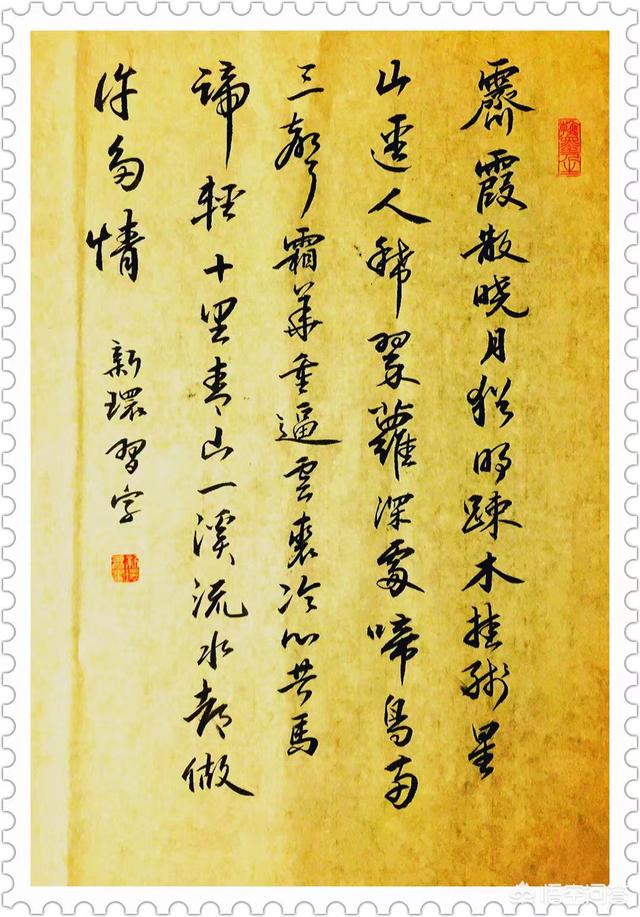 霽霞散曉月猶明踈木挂殘星
山逕人稀翠蘿深處啼鳥兩
三聲霜華重逼雲裘冷心共馬
蹄輕十里青山一溪流水都做
許多情
新環習字
悟空问答